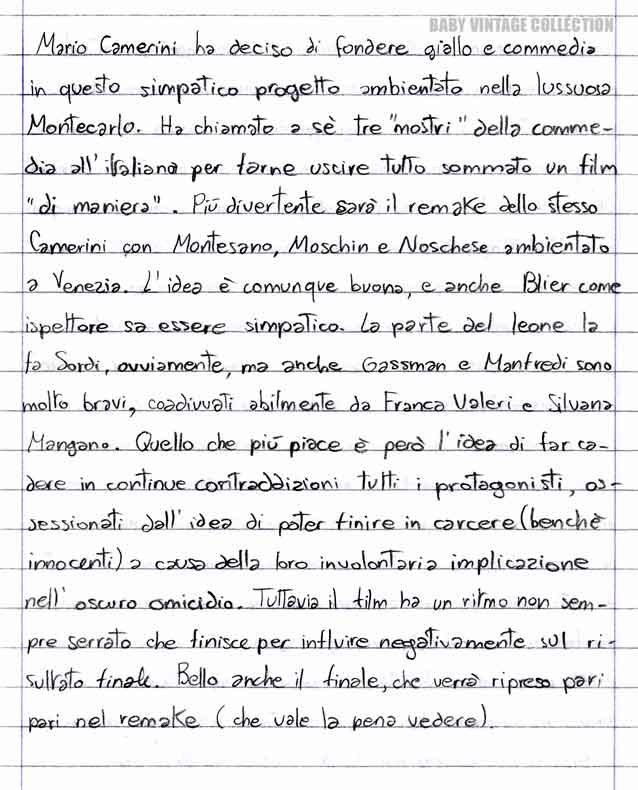 BABY VINTAGE COLLECTION
Mario Camerini ha deciso di fondere giallo e commedia
in questo simpatico progetto ambientato nella lussuosa
Montecarlo. Ha chiamato a sè tre "mostri" della comme-
dia all'italiana per farne uscire tutto sommato un film
"di maniera". Più divertente sarà il remake dello stesso
Camerini con Montesano, Moschin e Noschese ambientato
a Venezia. L'idea è comunque buona, e anche Blier come
ispettore sa essere simpatico. La parte del leone la
fa Sordi, ovviamente, ma anche Gassman e Manfredi sono
molto bravi, coadiuvati abilmente da Franca Valeri e Silvana
Mangano. Quello che più piace è però l'idea di far ca-
dere in continue contraddizioni tutti i protagonisti, os-
sessionati dall'idea di poter finire in carcere (benchè
innocenti) a causa della loro involontaria implicazione
nell'oscuro omicidio. Tuttavia il film ha un ritmo non sem-
pre serrato che finisce per influire negativamente sul ri-
sultato finale. Bello anche il finale, che verrà ripreso pari
pari nel remake (che vale la pena vedere).